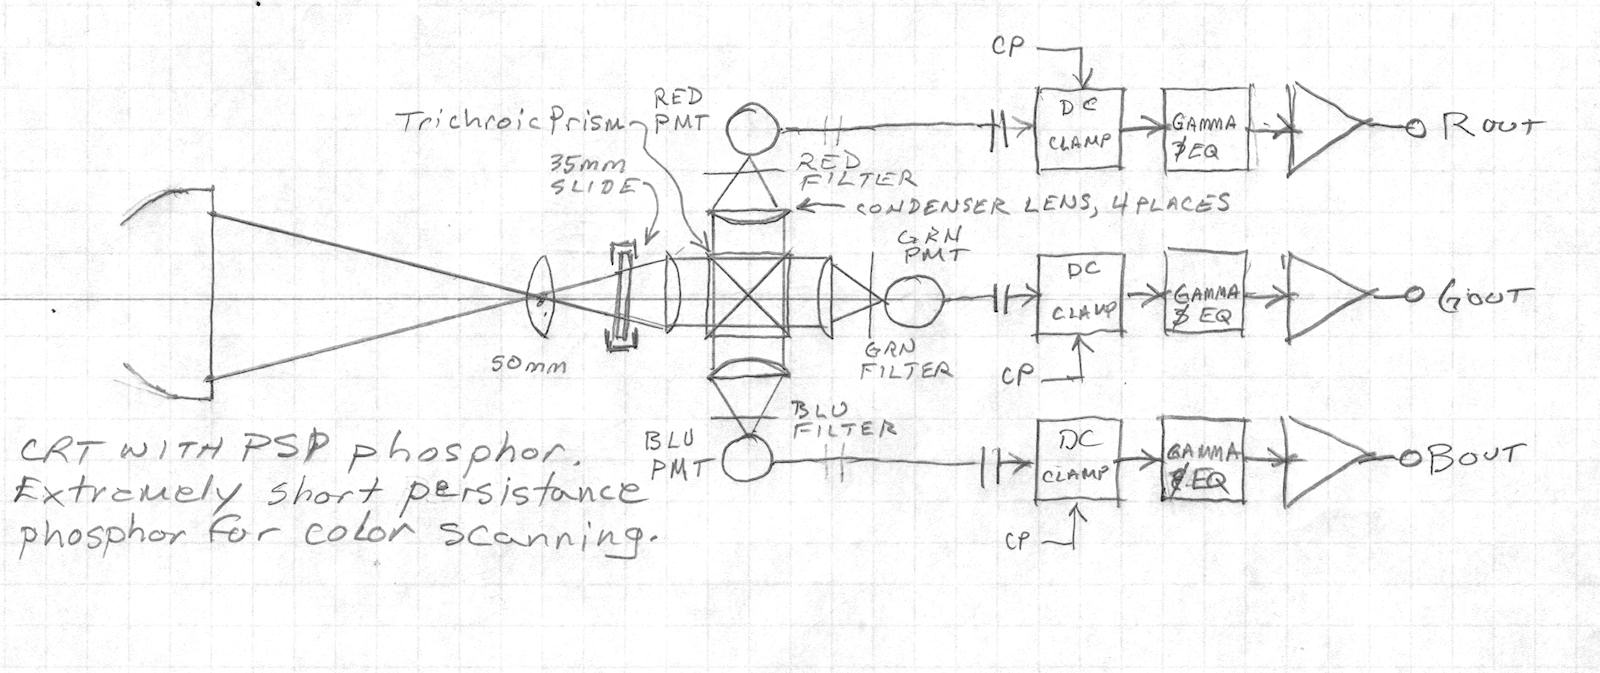 CP
RED
PMT
Trichroic Prism
DC
CLAMP
GAMMA
& EQ
ROUT
35mm
SLIDE
RED
FILTER
CONDENSER LENS, 4 PLACES
GRN
PMT
DC
CLAMP
GAMMA
& EQ
GOUT
50mm
GRN
FILTER
CP
BLU
FILTER
BLU
PMT
DC
CLAMP
GAMMA
& EQ
BOUT
CP
CRT WITH PSP phosphor.
Extremely short persistance
phosphor for color scanning.